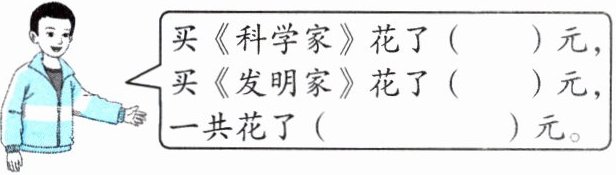 买《科学家》花了(　　)元,
买《发明家》花了(　　)元,
一共花了(　　　　)元。